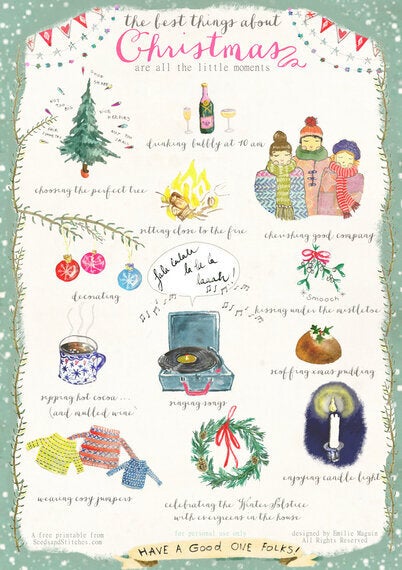 the best things about
Christmas
are all the little moments
drinking bubbly at 10 am
choosing the perfect tree
sitting close to the fire
cherishing good company
fala lalala
la la la
laaah!
decorating
SMOOCH
kissing under the mistletoe
scoffing xmas pudding
sipping hot cocoa ....
(and mulled wine)
singing songs
enjoying candle light
wearing cosy jumpers
celebrating the Winter Solstice
with evergreens in the house
A free printable from
SeedsandStitches.com
for personal use only
designed by Emilie Maguin
All Rights Reserved
HAVE A GOOD ONE FOLKS!